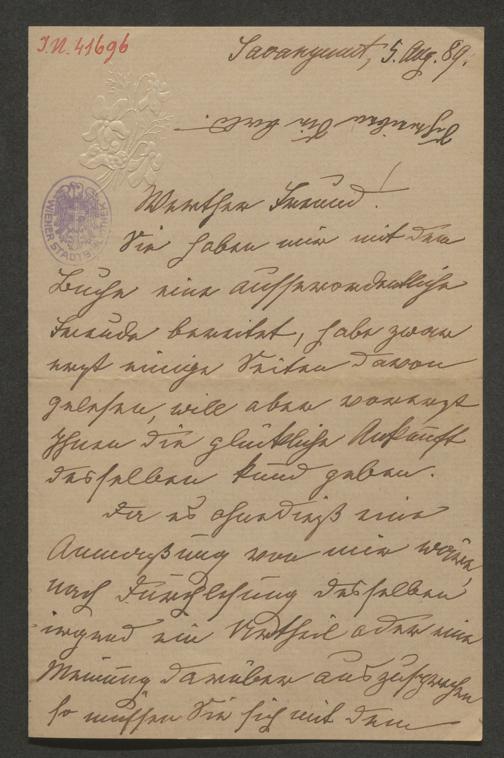 J.N. 41696
5. Aug. 89.
Schreiben Sie bald.
Werther Freund!
Sie haben mir mit dem
Buche eine aussserordentliche
Freude bereitet, habe zwar
erst einige Seiten davon
gelesen, will aber vorerst
Ihnen die glückliche Ankunft
desselben kund geben.
Da es ohnedieß eine
Anmaßung von mir wäre,
nach Durchlesung desselben
irgend ein Urtheil oder eine
Meinung darüber auszusprechen
so müssen Sie sich mit dem
WIENER STADTBIBLIOTHEK